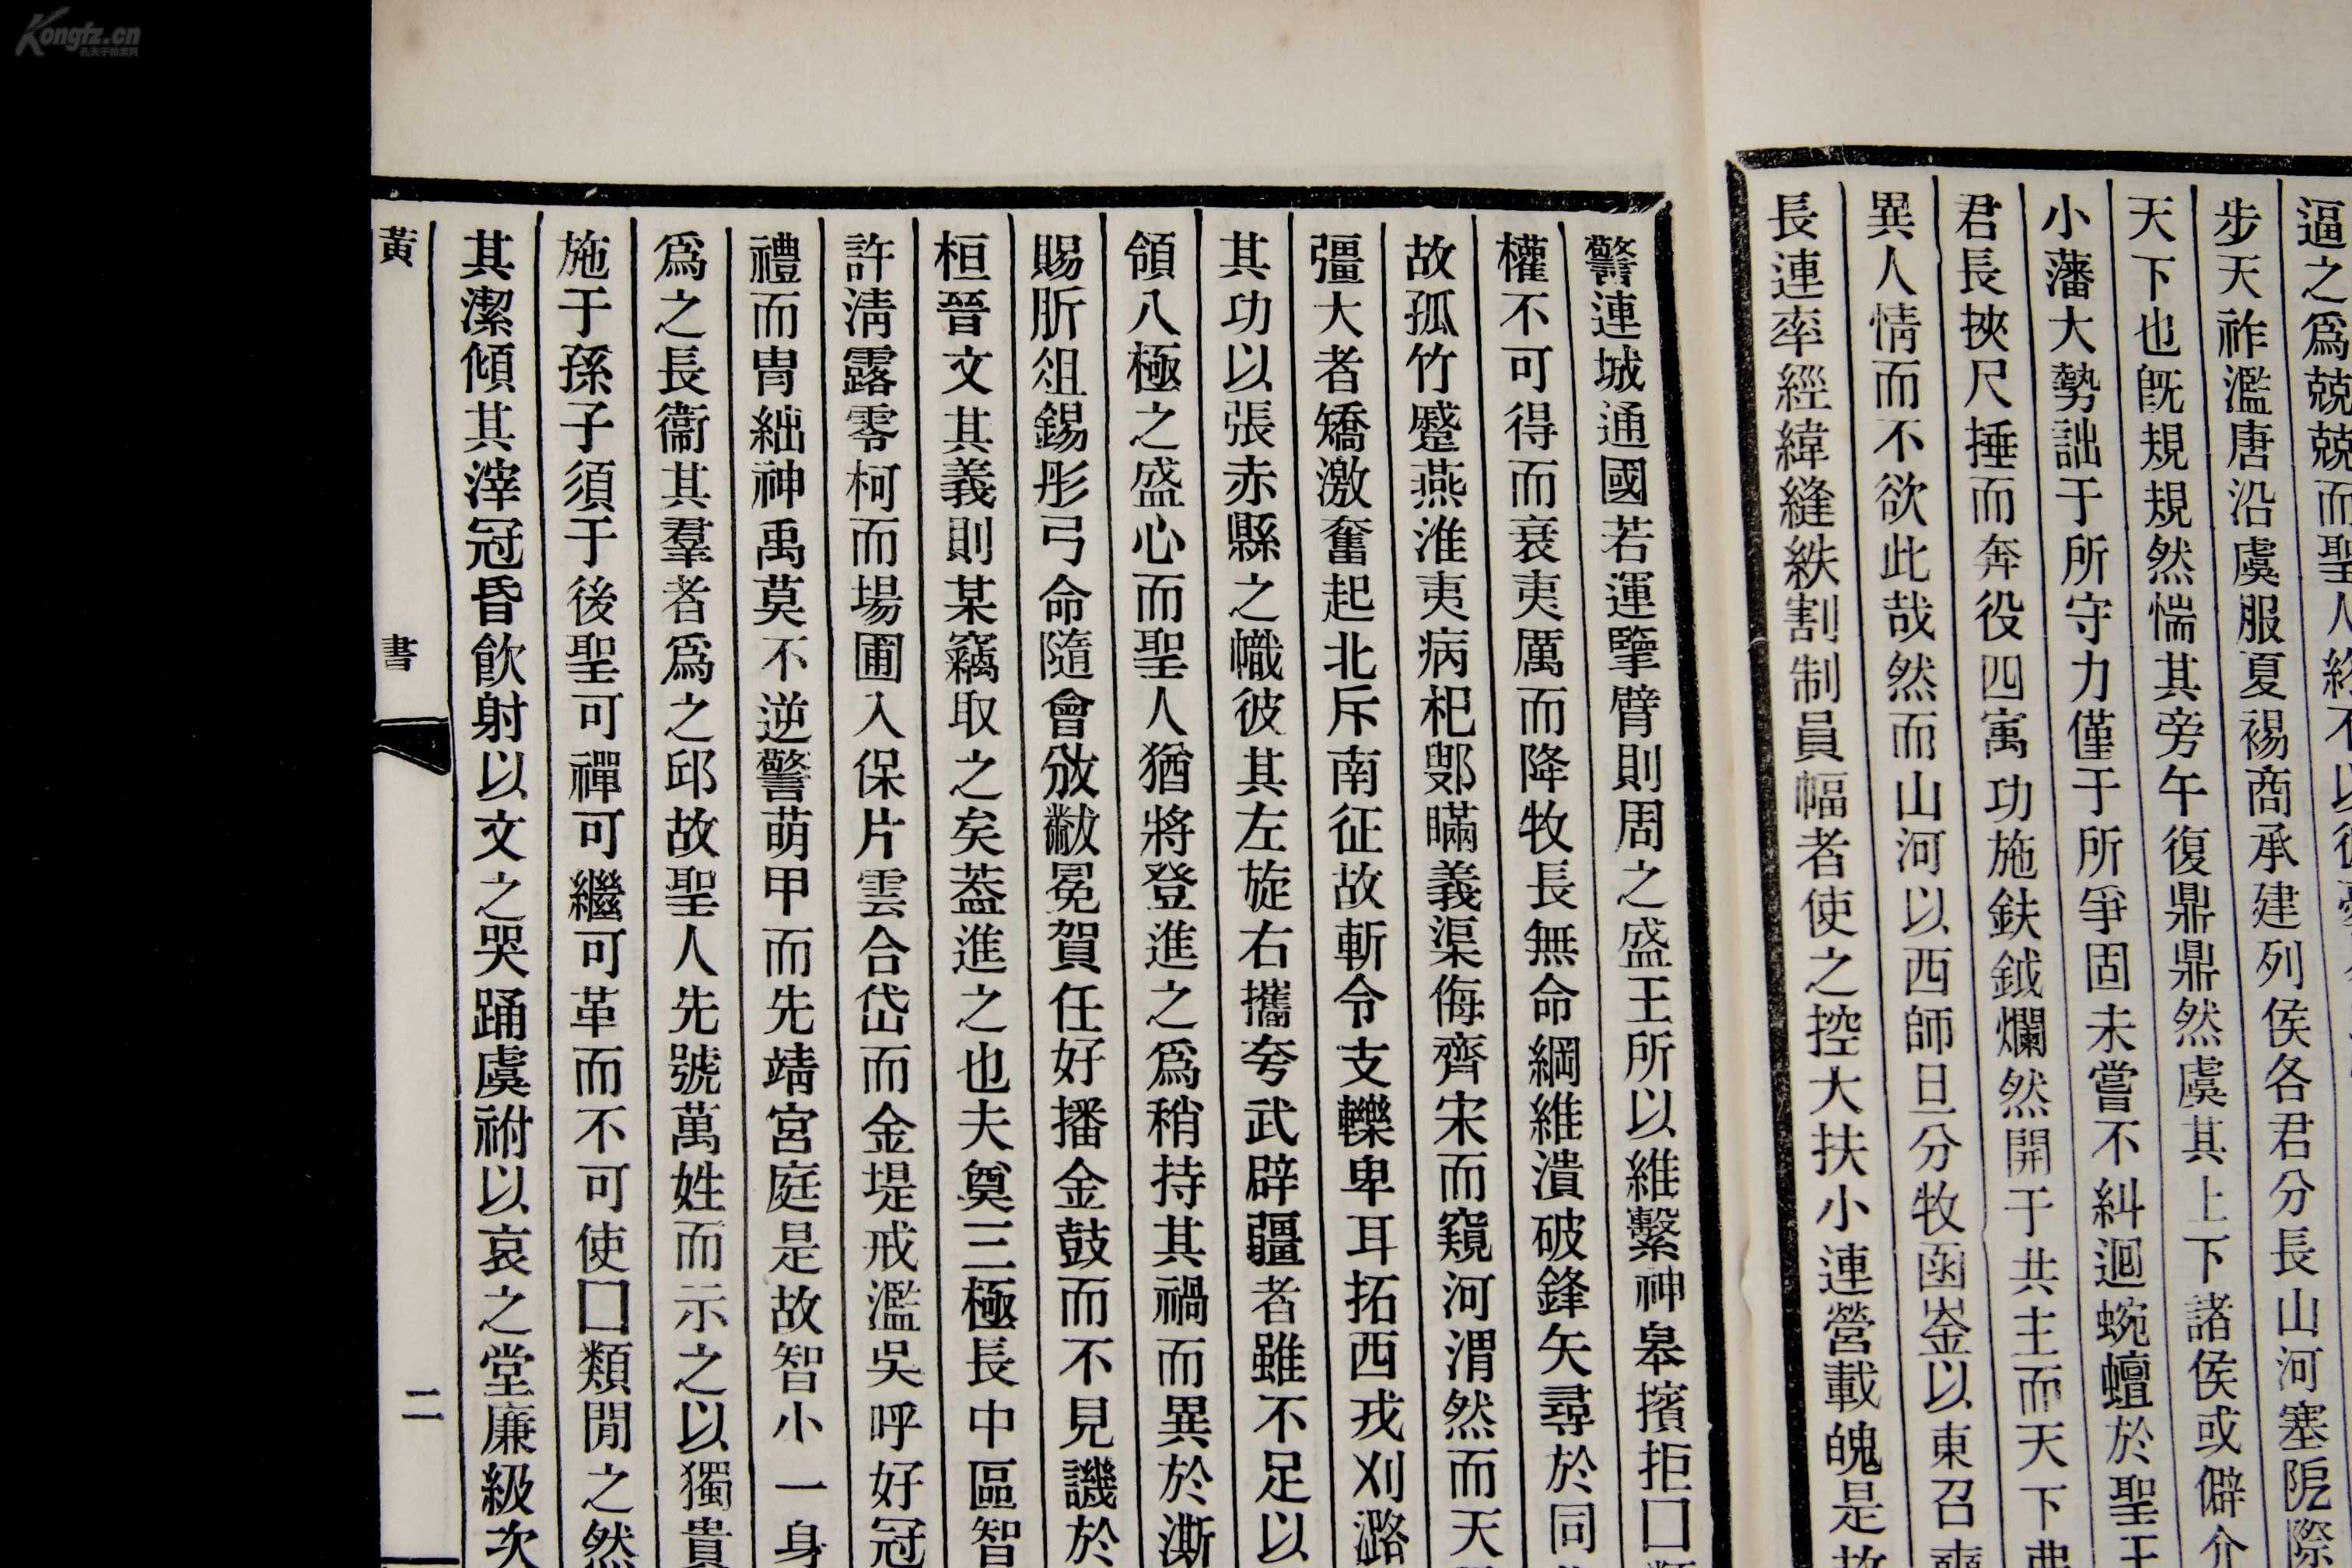 逼之爲兢兢而聖人終不以
步天祚濫唐沿虞服夏裼商承建列侯各君分長山河塞阨際
天下也旣規規然惴其旁午復鼎鼎然虞其上下諸侯或僻介
小藩大勢詘于所守力僅于所爭固未嘗不糾迴蜿蟺於聖王
君長挾尺捶而奔役四寓功施鈇鉞爛然開于共主而天下弗
異人情而不欲此哉然而山河以西師旦分牧函崟以東召奭
長連率經緯縫紩割制員幅者使之控大扶小連營載魄是故
警連城通國若運擥臂則周之盛王所以維繫神皋擯拒囗類
權不可得而衰夷厲而降牧長無命綱維潰破鋒矢尋於同
故孤竹蹙燕淮夷病杞鄋瞞義渠侮齊宋而窺河渭然而天
彊大者矯激奮起北斥南征故斬令支轢卑耳拓西戎刈潞
其功以張赤縣之幟彼其左旋右攜夸武辟疆者雖不足以
領八極之盛心而聖人猶將登進之爲稍持其禍而異於澌
賜肵俎錫彤弓命隨會攽黻冕賀任好播金鼓而不見譏於
桓晉文其義則某竊取之矣葢進之也夫奠三極長中區智
許淸露零柯而場圃入保片雲合岱而金堤戒濫吳呼好冠
禮而冑絀神禹莫不逆警萌甲而先靖宮庭是故智小一身
爲之長衞其羣者爲之邱故聖人先號萬姓而示之以獨貴
施于孫子須于後聖可禪可繼可革而不可使囗類閒之然
其潔傾其滓冠昏飮射以文之哭踊虞祔以哀之堂廉級次
黃書
二
Kongfz.cn
孔夫子拍卖网